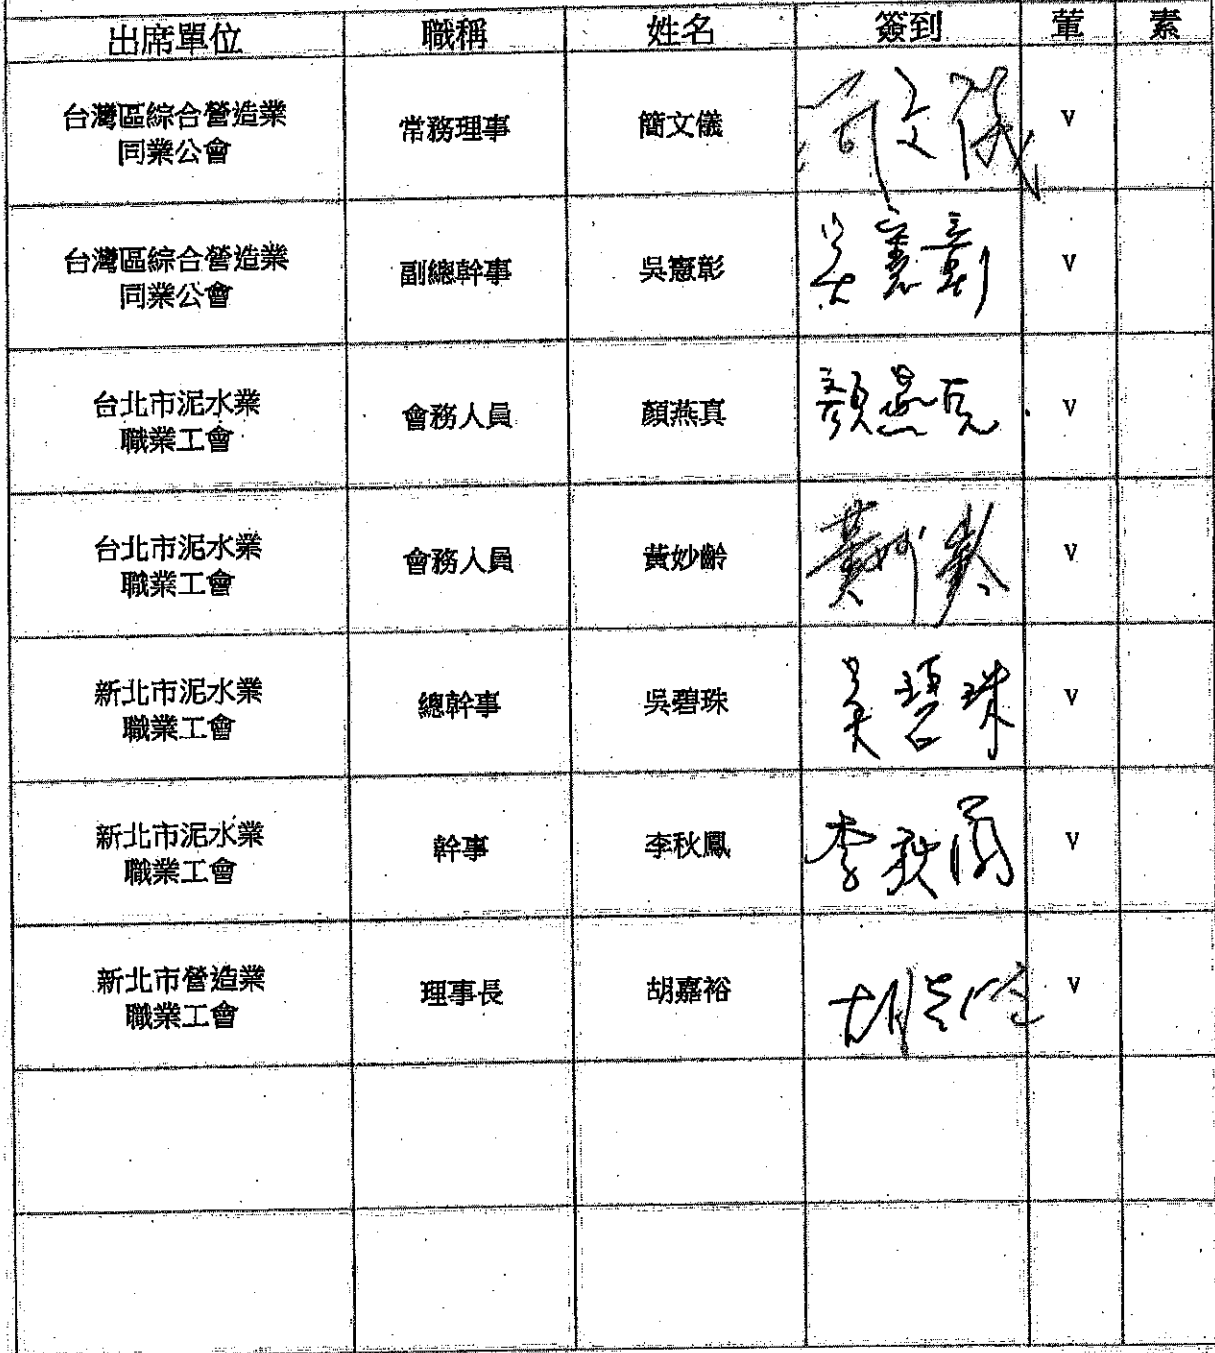 出席單位 職稱 姓名 簽到 葷 素
台灣區綜合營造業
同業公會
常務理事 簡文儀 簡文儀 v
台灣區綜合營造業
同業公會
副總幹事 吳憲彰 吳憲彰 v
台北市泥水業
職業工會
會務人員 顏燕真 顏燕真 v
台北市泥水業
職業工會
會務人員 黃妙齡 黃妙齡 v
新北市泥水業
職業工會
總幹事 吳碧珠 吳碧珠 v
新北市泥水業
職業工會
幹事 李秋鳳 李秋鳳 v
新北市營造業
職業工會
理事長 胡嘉裕 胡嘉裕 v